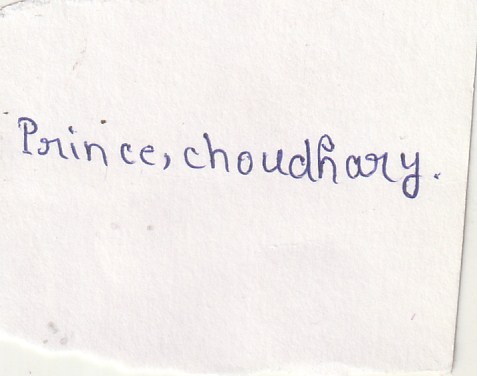 Prince, choudhary.